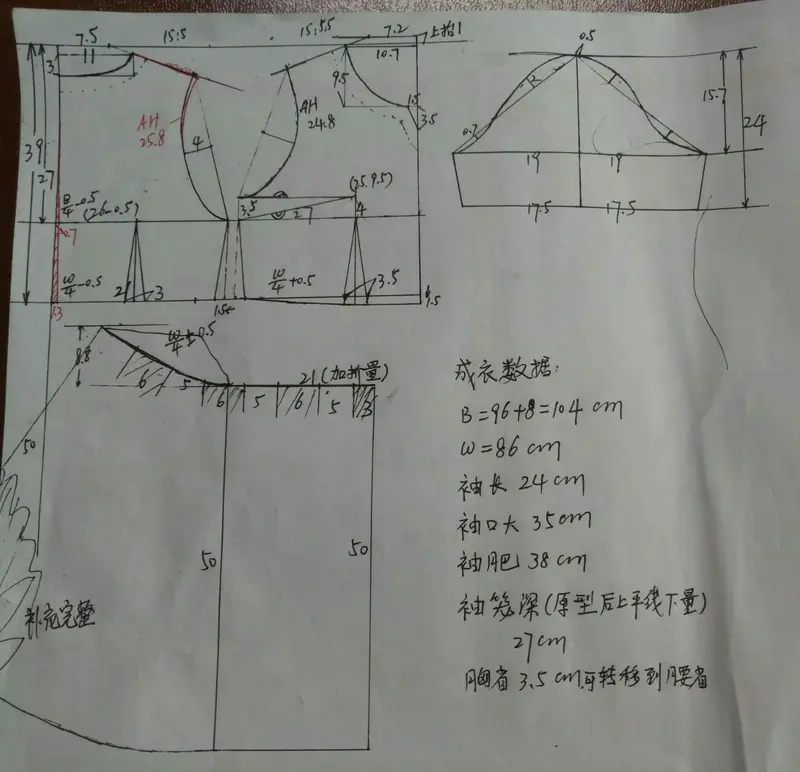 7.5
15.5
15.5.5
7.2
上抬1
11
3
10.7
9.5
1.5
3.5
AH
25.8
4
AH
24.8
39
27
B/4-0.5
(26-0.5)
0.7
3.5
27
(25.9.5)
4
W/4-0.5
2
3
W/4+0.5
3.5
1.3
1.5
1.5
0.5
15.7
24
0.7
19
19
17.5
17.5
8.8
6
5
6
5
6
5
3
21(加折量)
50
50
50
补充完整
成衣数据:
B=96+8=104 cm
W=86cm
袖长 24cm
袖口大 35cm
袖肥 38cm
袖笼深(原型后上平线下量)
27cm
胸省 3.5cm可转移到腰省